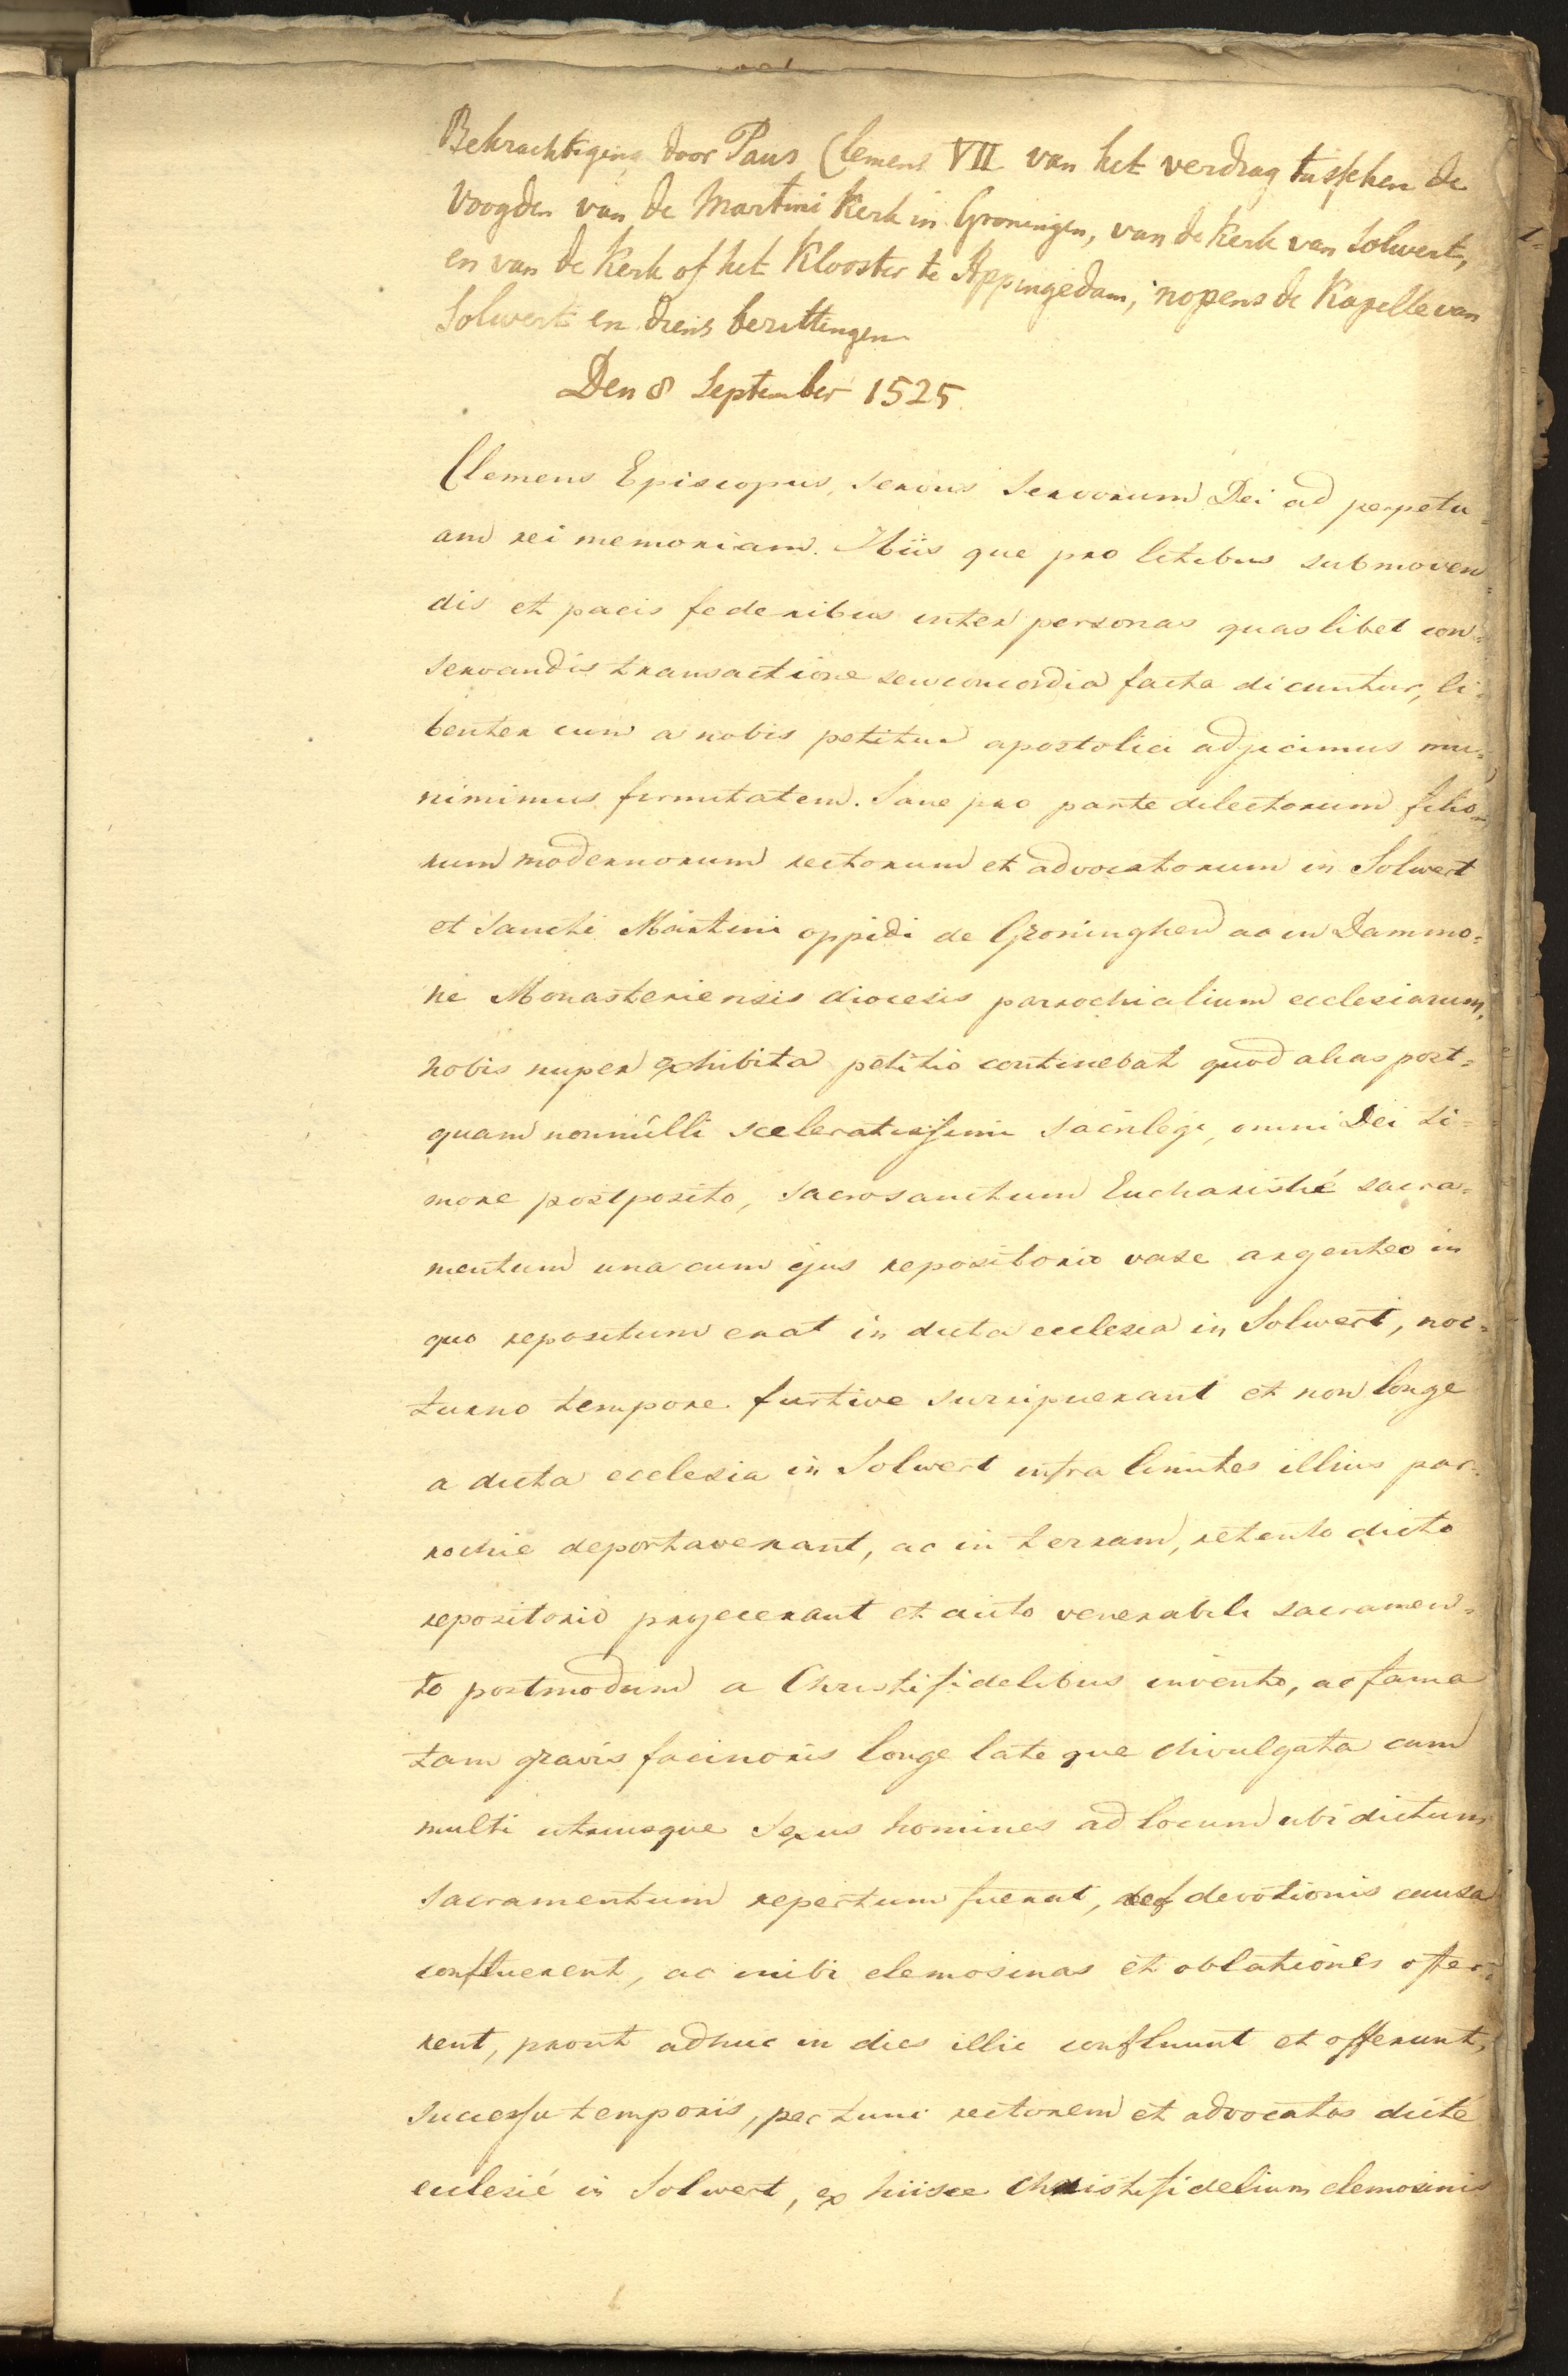 Bekrachtiging door Paus Clemens VII van het verdrag tusschen de
Voogden van de Martini Kerk in Groningen, van de Kerk van Solwert,
en van de Kerk of het Klooster te Appingedam, nopens de Kapelle van
Solwert en diens bezittingen
Den 8 September 1525.
Clemens Episcopus, servus servorum Dei ad perpetu=
am rei memoriam. Hiis que pro litibus submoven=
dis et pacis federibus inter personas quaslibet con=
servandis transactione seu concordia facta dicuntur, li=
benter cum a nobis petitur apostolici adjicimus mu=
nimimus firmitatem. Sane pro parte dilectorum filio=
rum modernorum rectorum et advocatorum in Solwert
et Sancti Martini oppidi de Groninghen ac in Dammo=
ne Monasteriensis diocesis parrochialium ecclesiarum,
nobis nuper exhibita petitio continebat quod alias post=
quam nonnûlli sceleratissimi sacrilegi, omni Dei ti=
more postposito, sacrosanctum Eucharistié sacra=
mentum una cum ejus repositorio vase argenteo in
quo repositum erat in dicta ecclesia in Solwert, noc=
turno tempore furtive surripuerant et non longe
a dicta ecclesia in Solwert infra limites illius par=
rochie deportaverant, ac in terram, retento dicto
repositorio projecerant et dicto venerabili sacramen=
to postmodum a Christifidelibus invento, ac fama
tam gravis facinoris longe lateque divulgata cum
multi utriusque sexus homines ad locum ubi dictum
sacramentum repertum fuerat, devotionis causa
confluerent, ac inibi elemosinas et oblationes offer=
rent, prout adhuc in dies illic confluunt et offerunt,
successu temporis, per tunc rectorem et advocatos dicté
ecclesié in Solwert, ex hiisce Christifidelium elemosinis